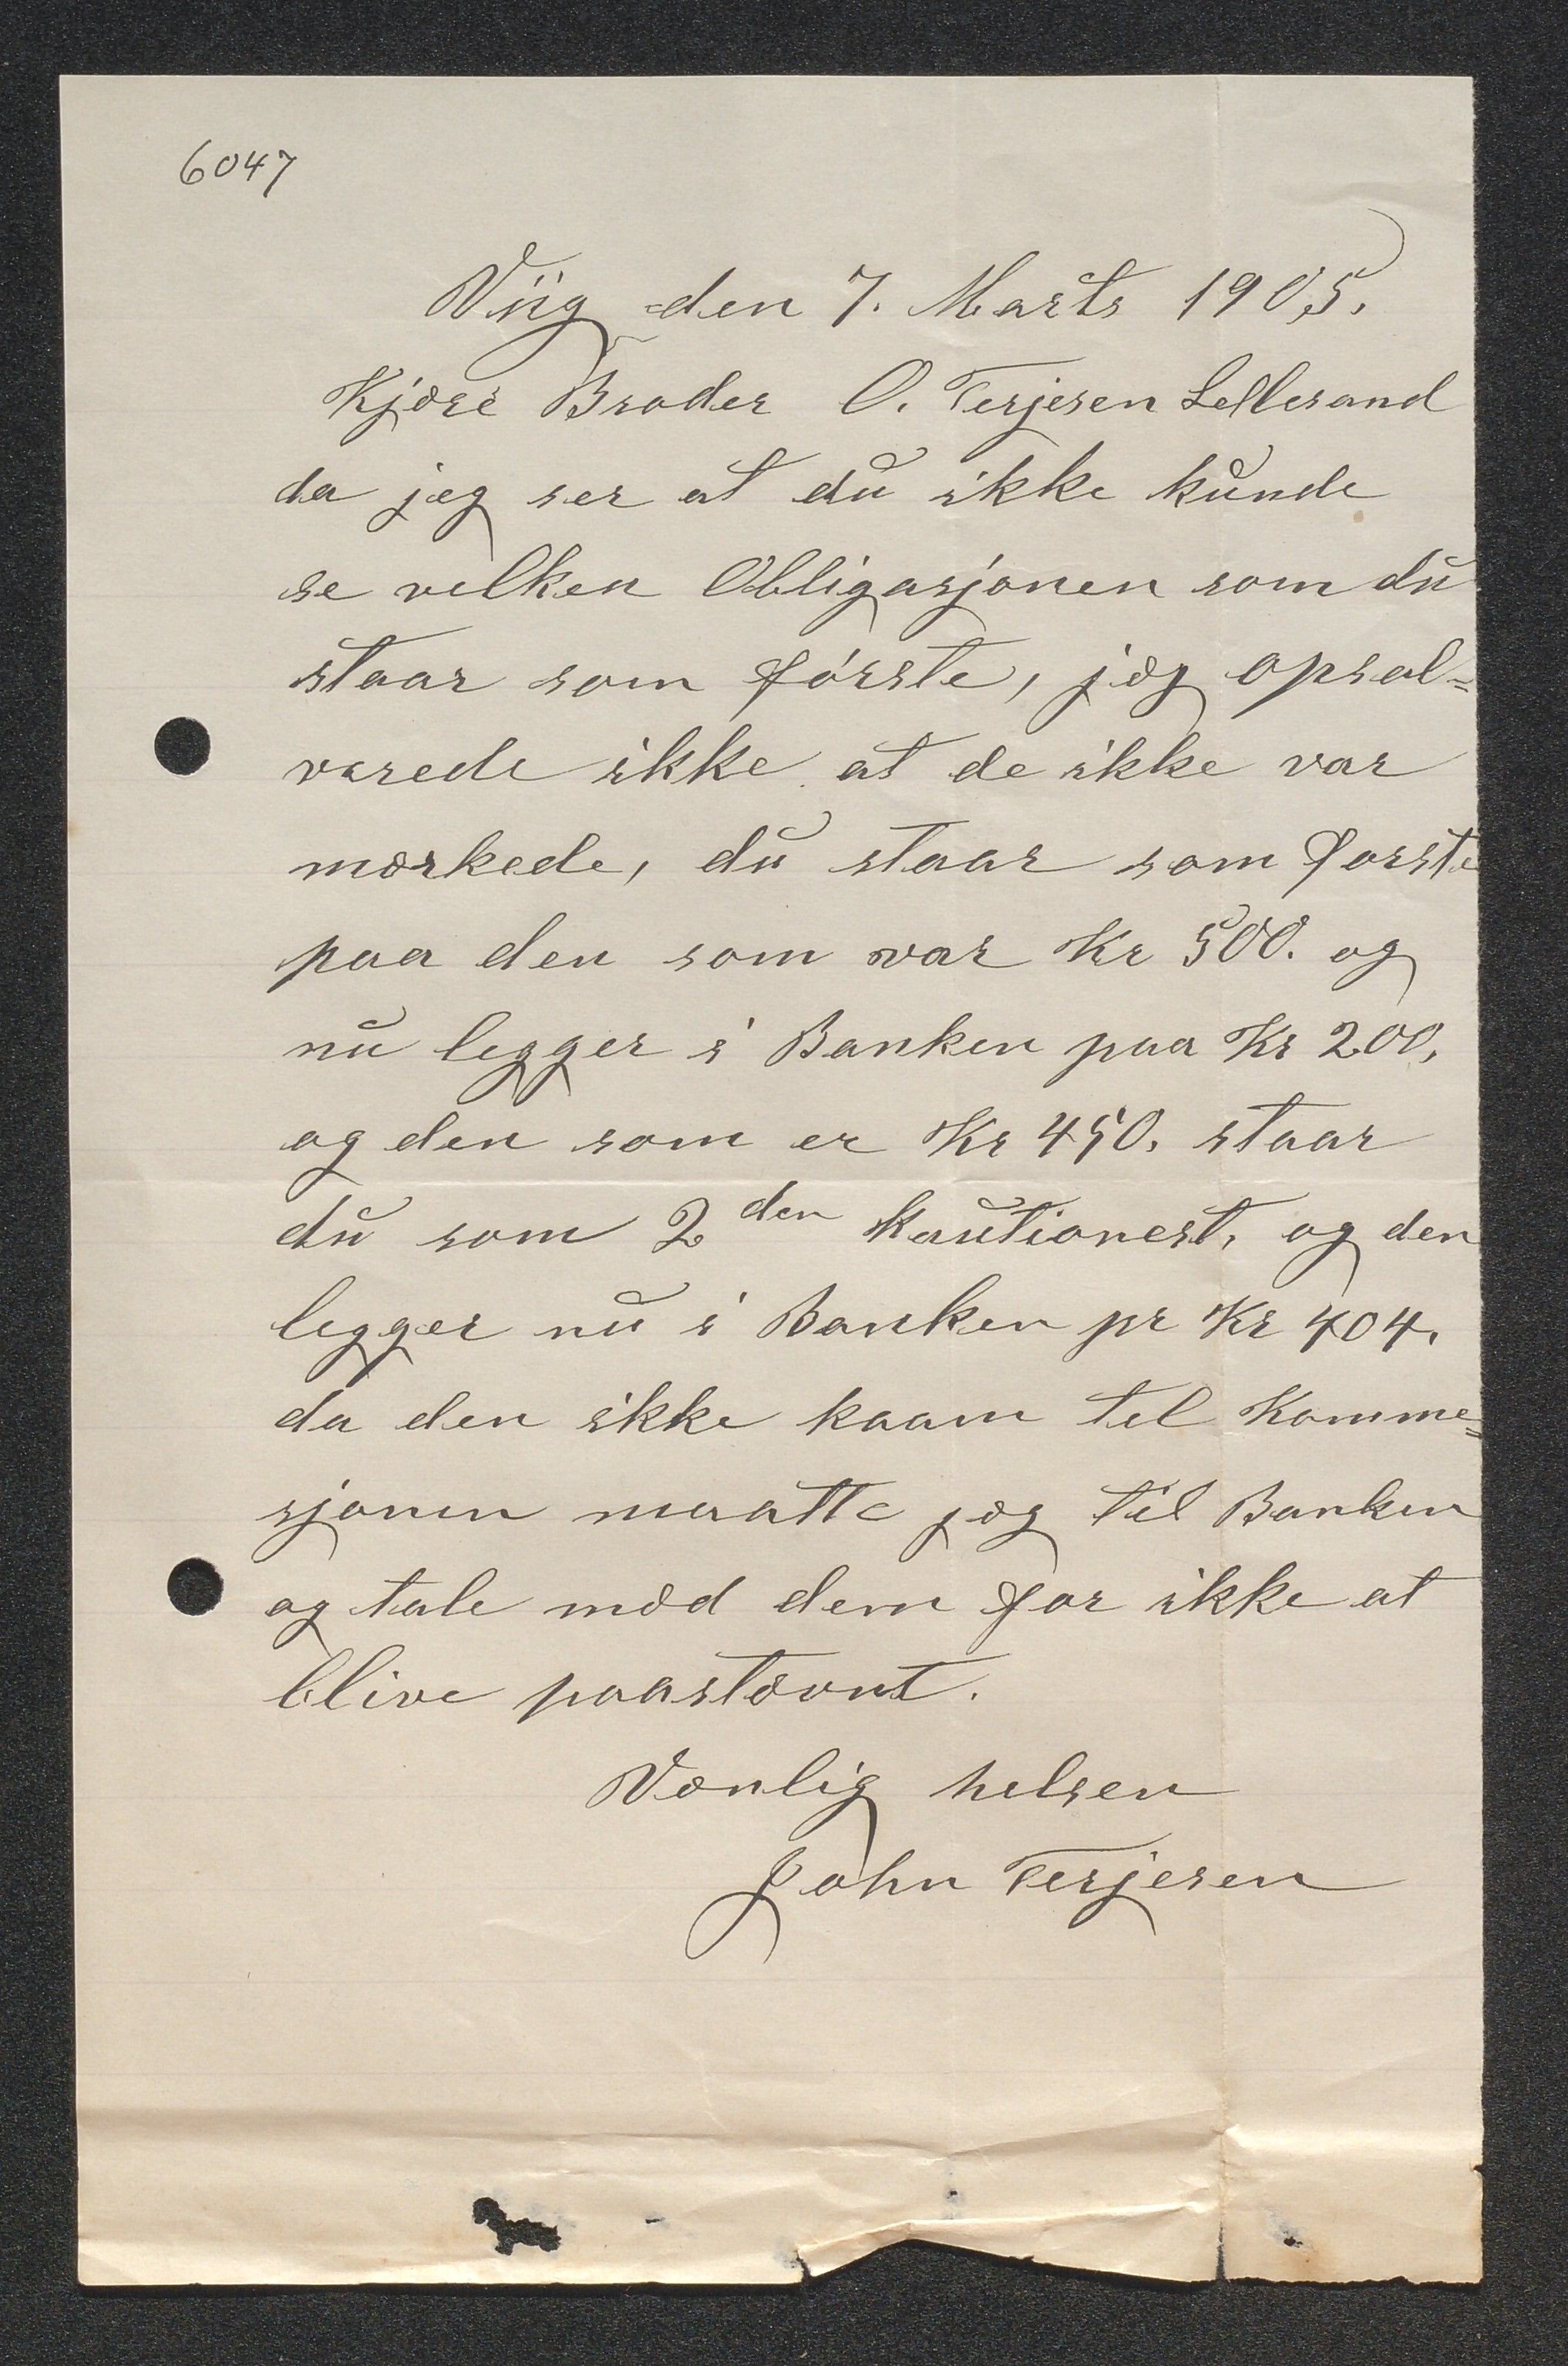 6047
Viig den 7. Marts 1905.
Kjære Broder O. Terjesen Lellesand
da jeg ser at du ikke kunde
se velken Obligasjonen som du
staar som förste, jeg opsal=
verede ikke at de ikke var
mærkede, du staar som förste
paa den som var Kr 500. og
nu legger i Banken paa Kr 200,
og den som er Kr 450. staar
du som 2den Kautionest, og den
legger nu i Banken pr Kr 404.
da den ikke kaam tel Komme=
sjonen maatte jeg til Banken
og tale med dem for ikke at
blive paastævnt.
Vænlig helsen
John Terjesen